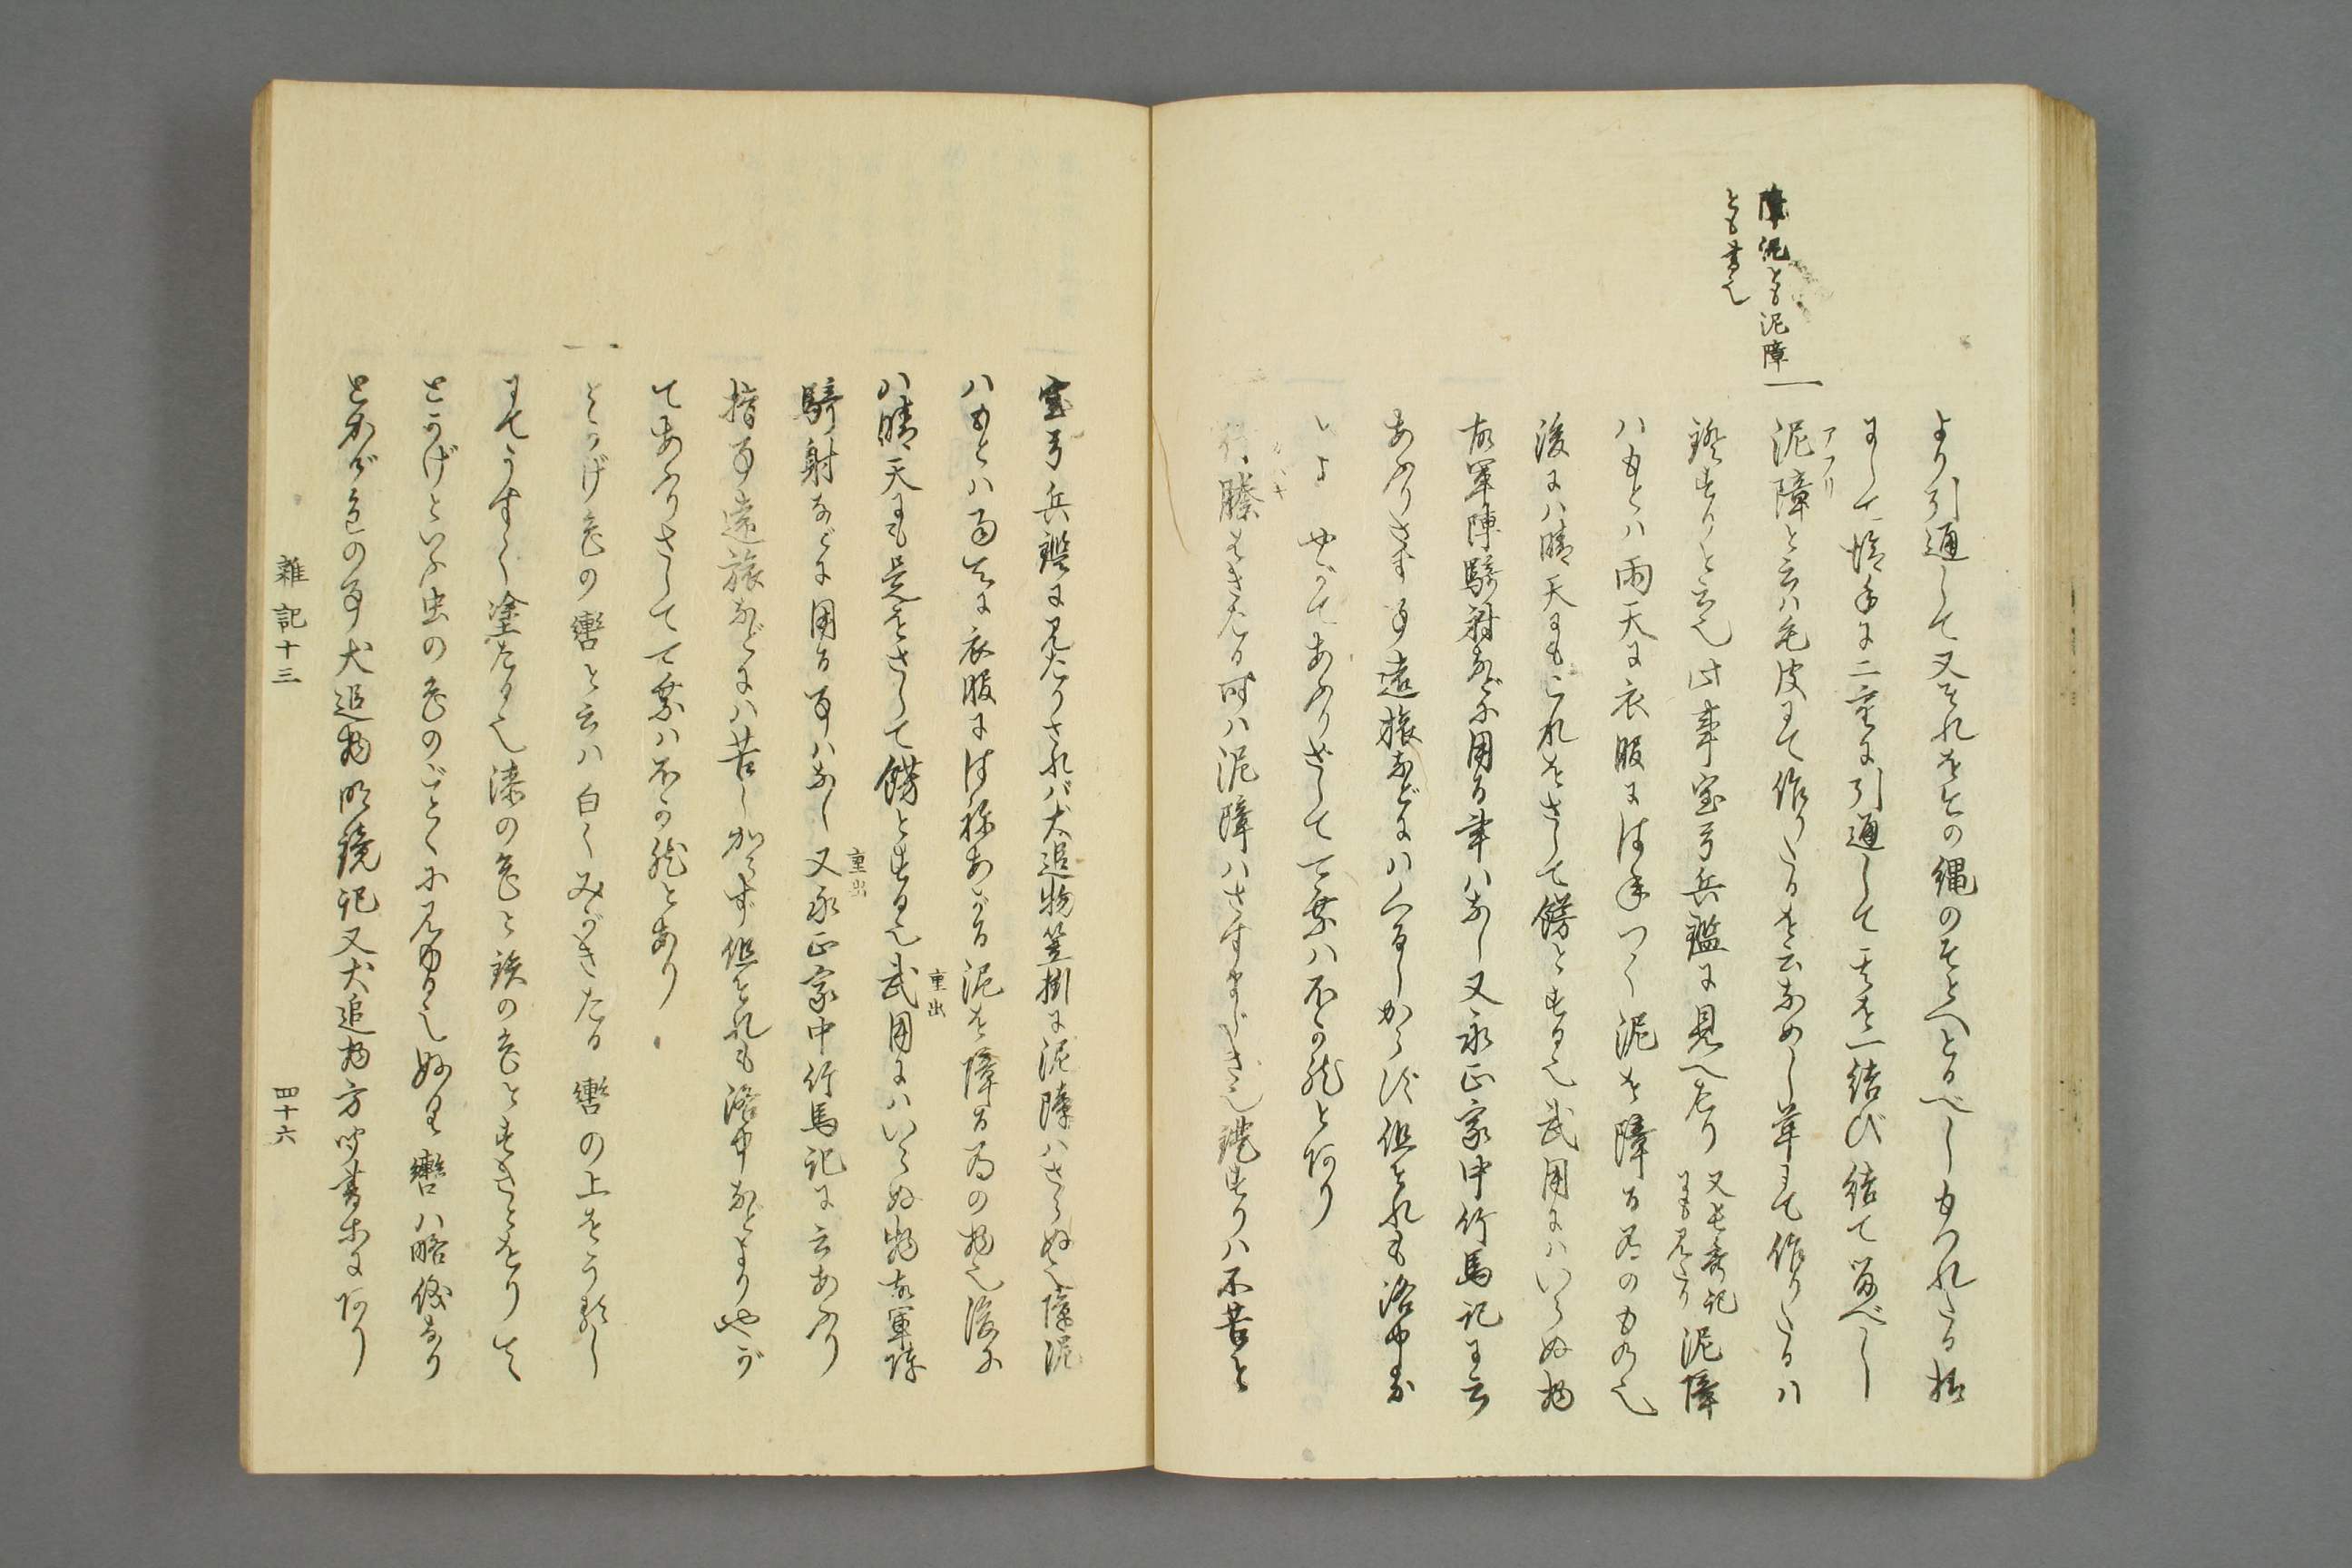 障泥とも泥障
とも書也
より引通して又それを其の縄のそとへとるべしもつれたる様
にして幾重に二重に引通して其を一結び結て留べし
アフリ
一泥障と云ハ毛皮にて作りたるを云なめし革にて作りたるハ
鐙すりと云也此事宝弓兵鑑に見へたり
又長秀記
にも見たり
泥障
ハもとハ雨天に衣服にはねつく泥を障る為のもの也
後にハ晴天にもこれをさして餝とする也武用にハいらぬ物
故軍陣騎射などに用る事ハなし又永正家中竹馬記に云
あふりさす事遠旅などにハくるしからず但それも洛中よ
り やがてあふりさして可乗ハ不可然とあり
行縢はきたる時ハ泥障ハさすまじき也鐙すりハ不苦と
宝弓兵鑑に見たりされバ犬追物笠掛に泥障ハさゝぬ也障泥
ハもとハ雨天に衣服にはねあがる泥を障る為の物也後に
ハ晴天にも是をさして餝とする也武用にハいらぬ物故軍陣
重出
騎射などに用る事ハなし又永正家中竹馬記に云あふり
重出
指事遠旅などにハ苦しからず但それも洛中などよりやが
てあふりさして可乗ハ不可然とあり
一とかげ色の轡と云ハ白くみがきたる轡の上をうるし
にてうすく塗たる也漆の色と鉄の色とすきとをりて
とかげといふ虫の色のごとくに見ゆる也如此轡ハ略儀なり
とかげ色の事犬追物明鏡記又犬追物方聞書等にあり
雑記十三
四十六